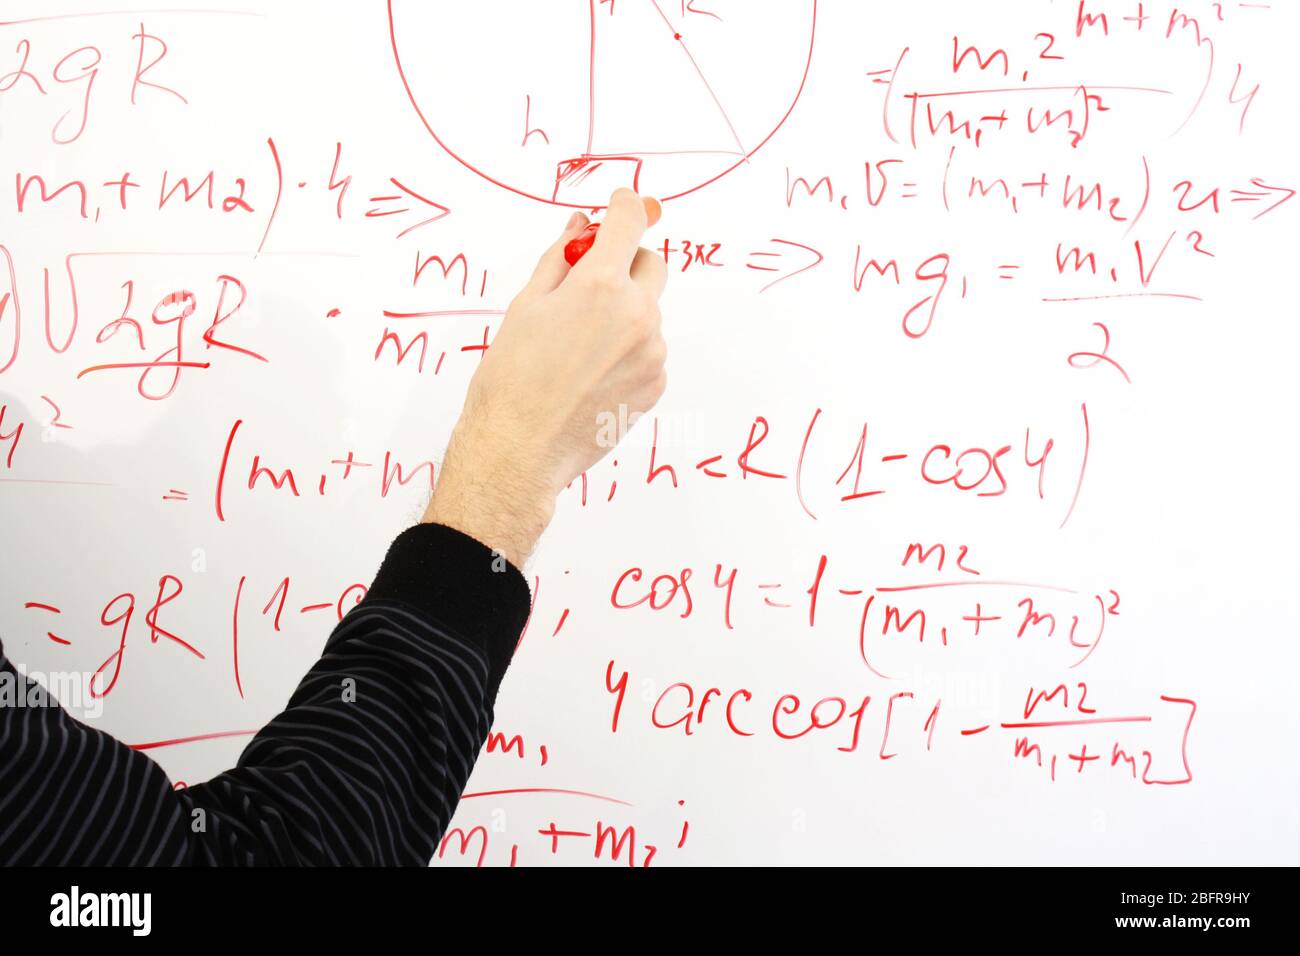 R
2gR
h
m + m₂²
= (m₁² / (m₁ + m₂)²) 4
m₁ + m₂) · 4 =>
m₁V = (m₁ + m₂) u =>
√2gR · m₁ / m₁ +
+3x2 => mg₁ = m₁V² / 2
4²
= (m₁ + m
; h < R (1 - cos4)
= gR (1 - c
; cos4 = 1 - m2 / (m₁ + m₂)²
4 arccos [1 - m2 / m₁ + m2]
m₁
m₁ + m₂ ;
alamy
Image ID: 2BFR9HY
www.alamy.com